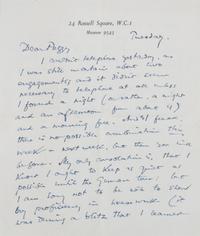 24 Russell Square, W.C.1
Museum 9543
Tuesday.
Dear Peggy
I didn't telephone yesterday, as
I was still uncertain about two
engagements; and it didn't seem
necessary to telephone at all unless
I found a night (or rather a night
and an afternoon for about 4)
and a morning free. And I fear
there is no possible combination this
week or next week, but then
before. My only consolation is, that I
know I ought to keep as quiet as
possible until the German tour, but
I am sorry not to be able to show
my proficiency in housework (it
was during a blitz that I learned